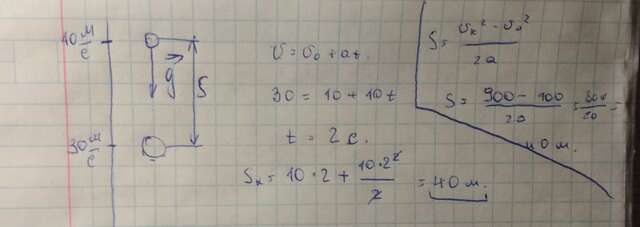 10 м/с
g
S
30 м/с
v = v₀ + at.
30 = 10 + 10t
t = 2 с.
Sₓ = 10 · 2 + 10·2²/2 = 40 м.
S = (vₖ² - v₀²)/2a
S = (900 - 100)/20 = 800/20 =
40 м.